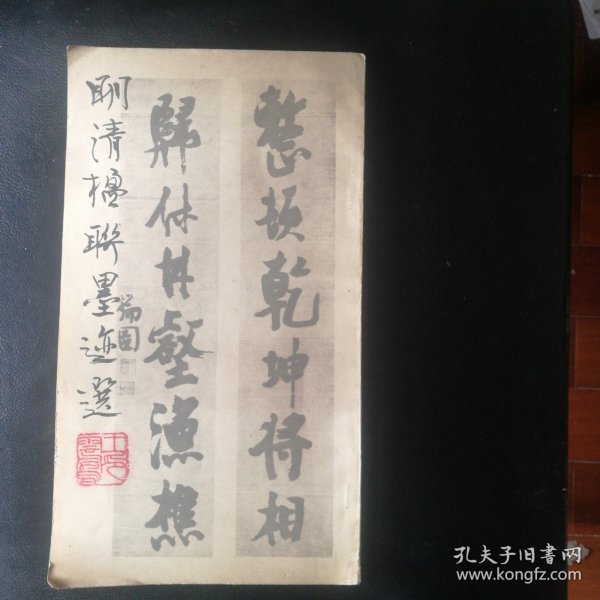 整頓乾坤將相
歸休林壑漁樵
瑞圖
眀清楹聯墨迹選
孔夫子旧书网
www.kongfz.com